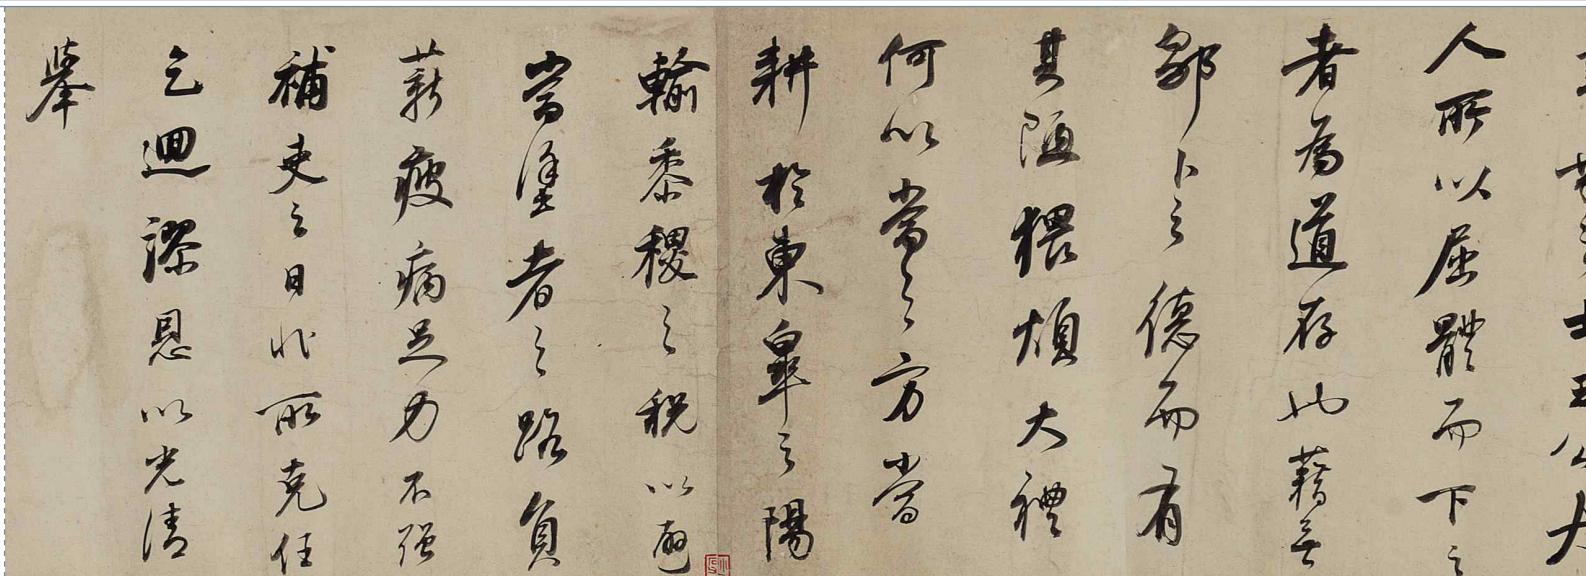 士王公大
人所以屈體而下之
者為道存也藉無
鄒卜之德而有
其陋猥煩大禮
何以當之方當
耕於東皐之陽
輸黍稷之稅以避
當塗者之路負
薪疲病足力不强
補吏之日非所克任
乞迴謬恩以光清
舉